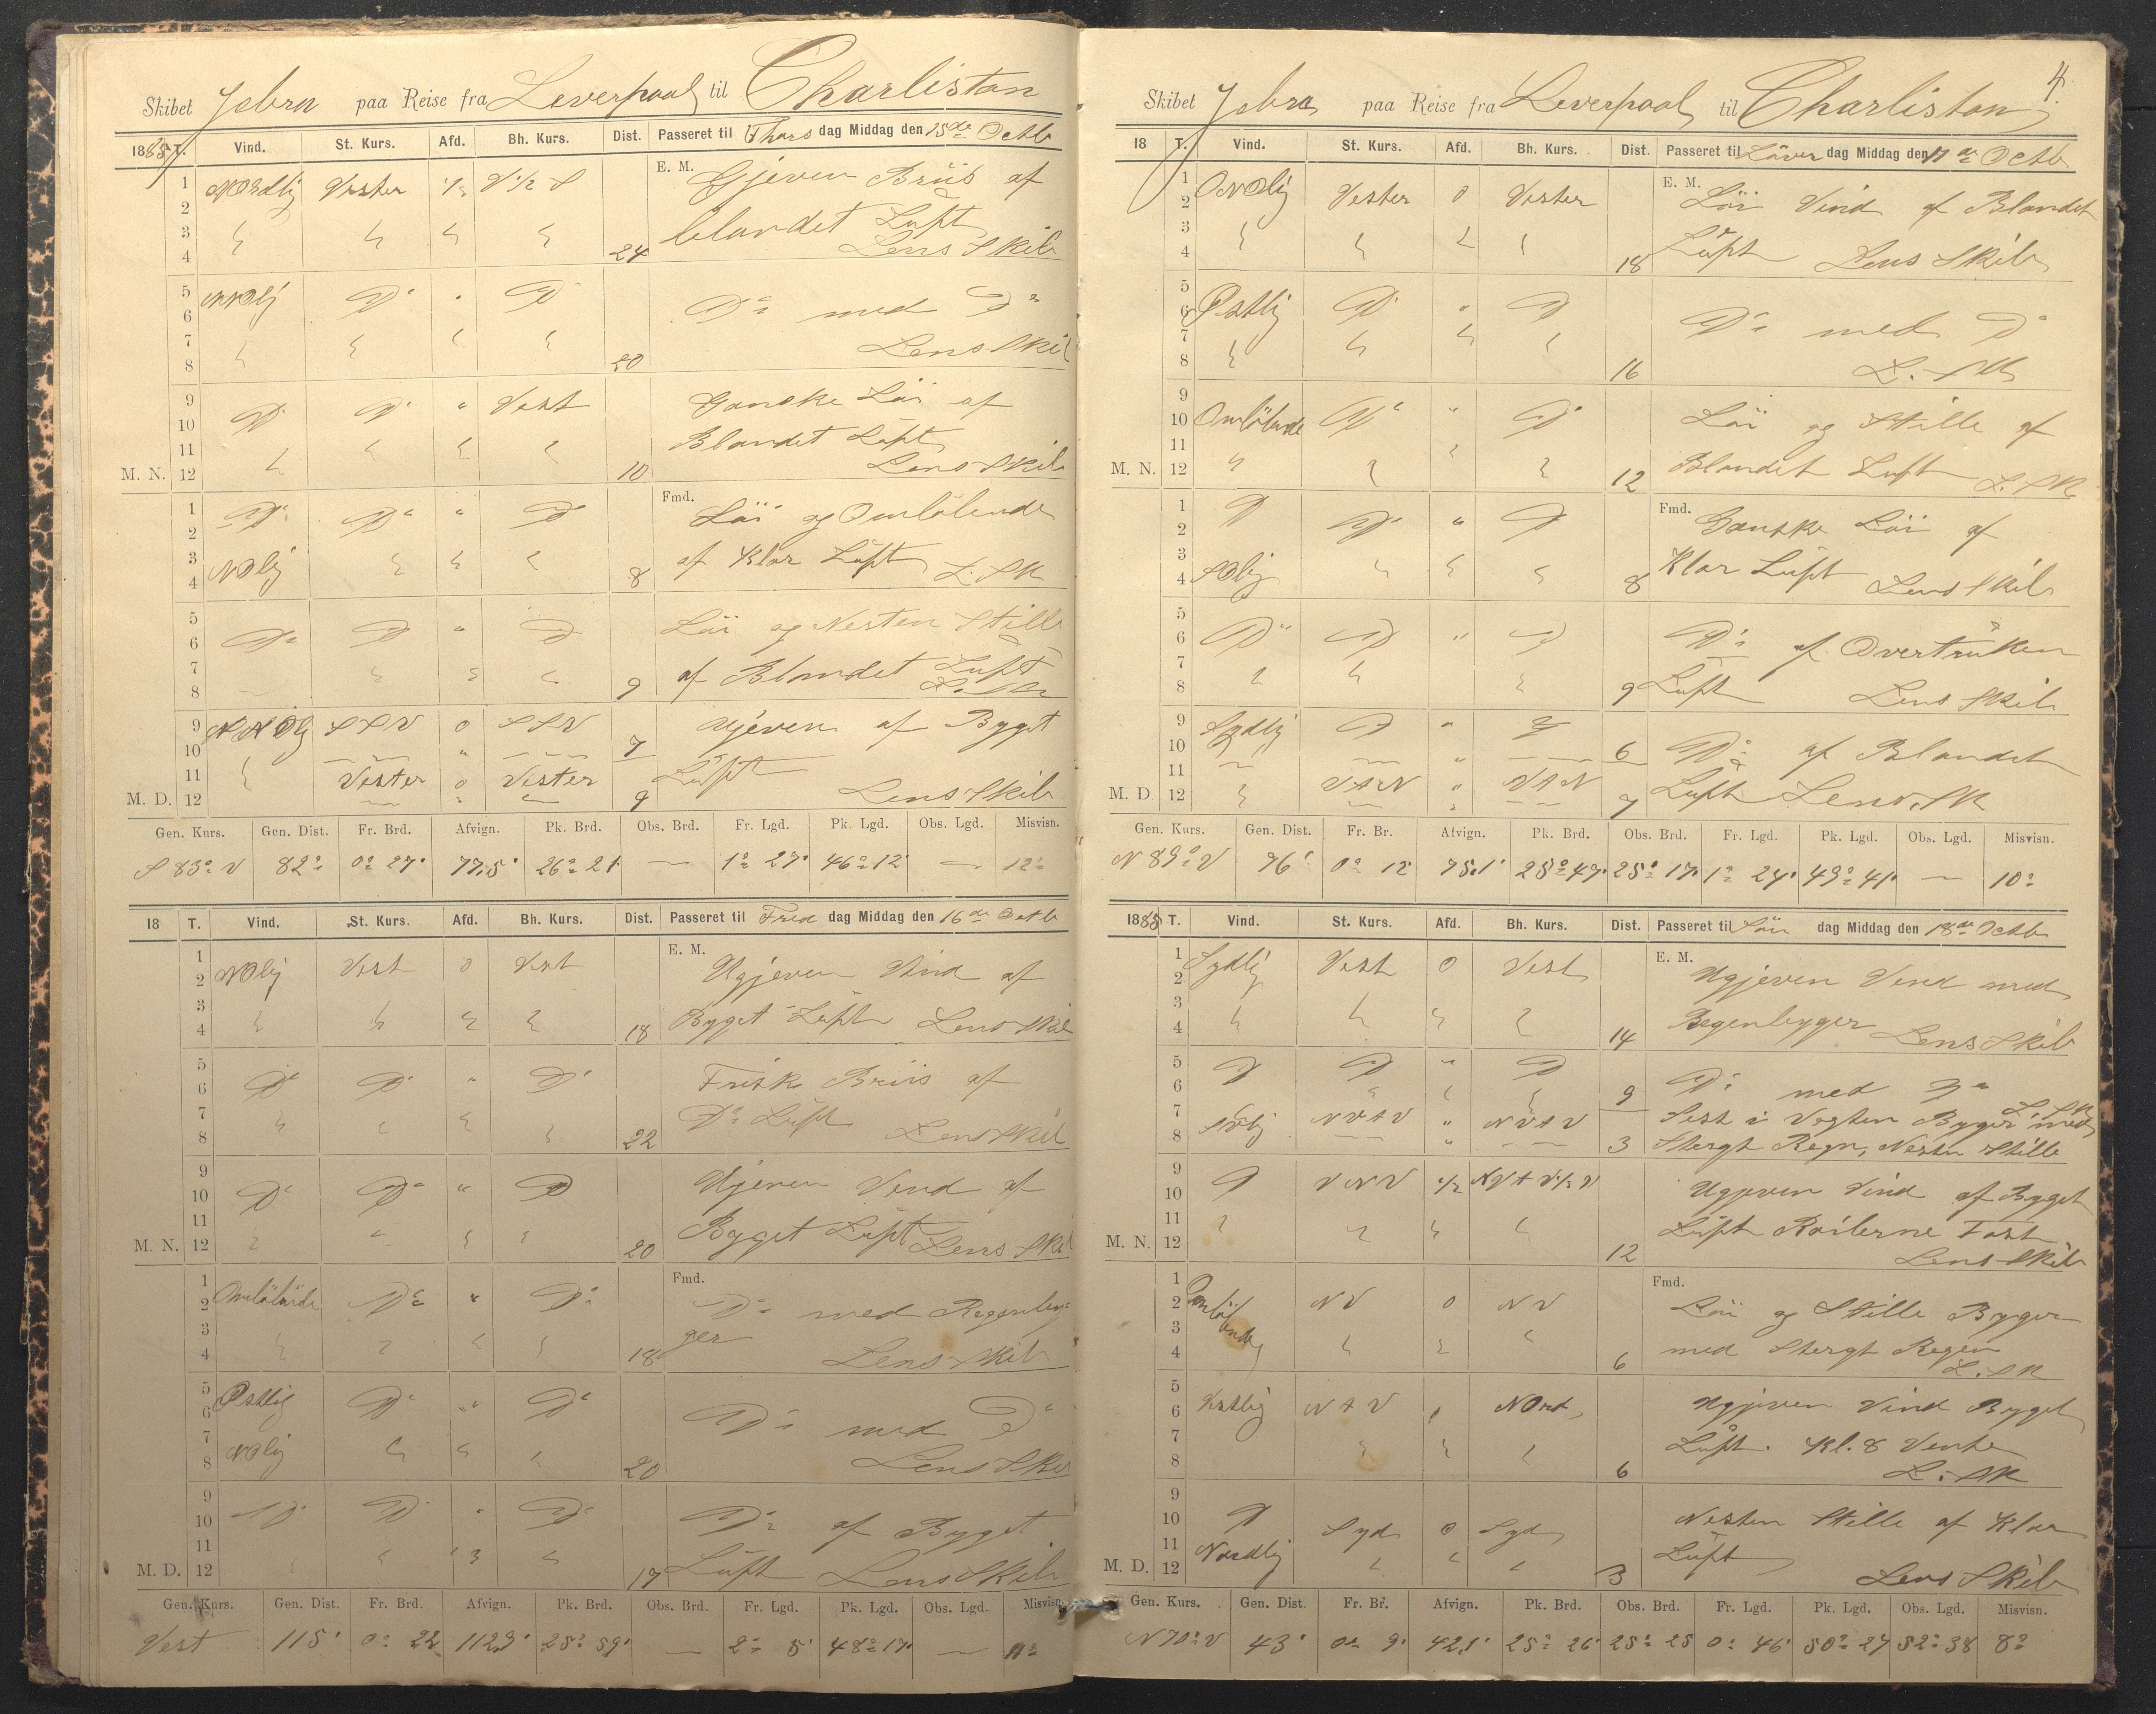 Skibet Jebra paa Reise fra Leverpool til Charliston
1885 T. Vind. St. Kurs. Afd. Bh. Kurs. Dist. Passeret til Thors dag Middag den 15de Octb
1 Nordlig Vester 1/2 V 1/2 S E. M. Gjeven Briis af
2
3 blandet Luft
4 24 Lens Skib
5 NNOlig Do " Do
6 Do med Do
7
8 20 Lens Skib
9 Do Do " Vest Ganske Löi af
10
11 Blandet Luft
M. N. 12 10 Lens Skib
1 Do Do " Do Fmd. Löi og Omlöbende
2
3 NOlig af Klar Luft
4 8 L. Sk
5 Löi og Nesten Stille
6 Do Do " Do
7 af Blandet Luft
8 9 L. Sk
9 NNOlig SSV 0 SSV 7 Ujeven af Byget
10
11 Vester 0 Vester Luft
M. D. 12 9 Lens Skib
Gen. Kurs. Gen. Dist. Fr. Brd. Afvign. Pk. Brd. Obs. Brd. Fr. Lgd. Pk. Lgd. Obs. Lgd. Misvisn.
S 83° V 82° 0° 27' 77,5' 26° 21' — 1° 27' 46° 12' — 12°
18 T. Vind. St. Kurs. Afd. Bh. Kurs. Dist. Passeret til Fred dag Middag den 16de Octb
1 NOlig Vest 0 Vest E. M.
2 Ugjeven Vind af
3
4 18 Byget Luft Lens Skib
5
6 Do Do " Do Frisk Briis af
7 Do Luft
8 22 Lens Skib
9
10 Do Do " Do Ujeven Vind af
11
M. N. 12 20 Byget Luft Lens Skib
1 Fmd.
2 Omlöbende Do " Do Do med Regenbyg-
3 ger
4 18 Lens Skib
5 Østlig Do " Do
6 Do med Do
7 NOlig
8 20 Lens Skib
9 Do Do " Do
10 Do af Byget
11
M. D. 12 19 Luft Lens Skib
Gen. Kurs. Gen. Dist. Fr. Brd. Afvign. Pk. Brd. Obs. Brd. Fr. Lgd. Pk. Lgd. Obs. Lgd. Misvisn.
Vest 115' 0° 22 112,3' 25° 59' — 2° 5' 48° 17' — 11°
4.
Skibet Jebra paa Reise fra Leverpool til Charliston
18 T. Vind. St. Kurs. Afd. Bh. Kurs. Dist. Passeret til Löver dag Middag den 17de Octb
1 ONOlig Vester 0 Vester E. M. Löi Vind af Blandet
2
3 Luft
4 18 Lens Skib
5
6 Østlig Do " Do Do med Do
7
8 16 L. Sk
9
10 Omlöbende Do " Do Löi og Stille af
11
M. N. 12 12 Blandet Luft L. Sk
1 Do Do " Do Fmd. Ganske Löi af
2
3 Klar Luft
4 SOlig 8 Lens Skib
5
6 Do Do " Do Do af Overtrüken
7
8 9 Luft Lens Skib
9 Sydlig Do " Do
10 6 Do af Blandet
11 VtN " VtN Luft
M. D. 12 7 Lens Sk
Gen. Kurs. Gen. Dist. Fr. Br. Afvign. Pk. Brd. Obs. Brd. Fr. Lgd. Pk. Lgd. Obs. Lgd. Misvisn.
N 89° V 76' 0° 12' 75,1' 25° 47' 25° 17' 1° 24' 49° 41' — 10°
1885 T. Vind. St. Kurs. Afd. Bh. Kurs. Dist. Passeret til Sön dag Middag den 18de Octb
1 Sydlig Vest 0 Vest E. M.
2 Ugjeven Vind med
3
4 14 Regenbygger Lens Skib
5 Do Do " Do
6 9 Do med Do L. Sk
7 SVlig NVtV " NVtV Sest i Vagten Byger med
8 3 Stergt Regn, Nesten Stille
9 Do VNV 1/2 NVtV 1/2 V
10 Ugjeven Vind af Byget
11 Luft Roilerne Fast
M. N. 12 12 Lens Skib
1 Fmd.
2 Omlöbende NV 0 NV Löi og Stille Byger
3
4 6 med Stergt Regen L. Sk
5
6 Vestlig NtV Nord Ugjeven Vind Byget
7 Luft. Kl. 8 Vente
8 6 L. Sk
9 Nesten Stille af Klar
10 Do Syd 0 Syd
11 Nordlig Luft
M. D. 12 3 Lens Skib
Gen. Kurs. Gen. Dist. Fr. Br. Afvign. Pk. Brd. Obs. Brd. Fr. Lgd. Pk. Lgd. Obs. Lgd. Misvisn.
N 70° V 43' 0° 9' 42,1' 25° 26' 25° 25 0° 46' 50° 27 52° 38 8°